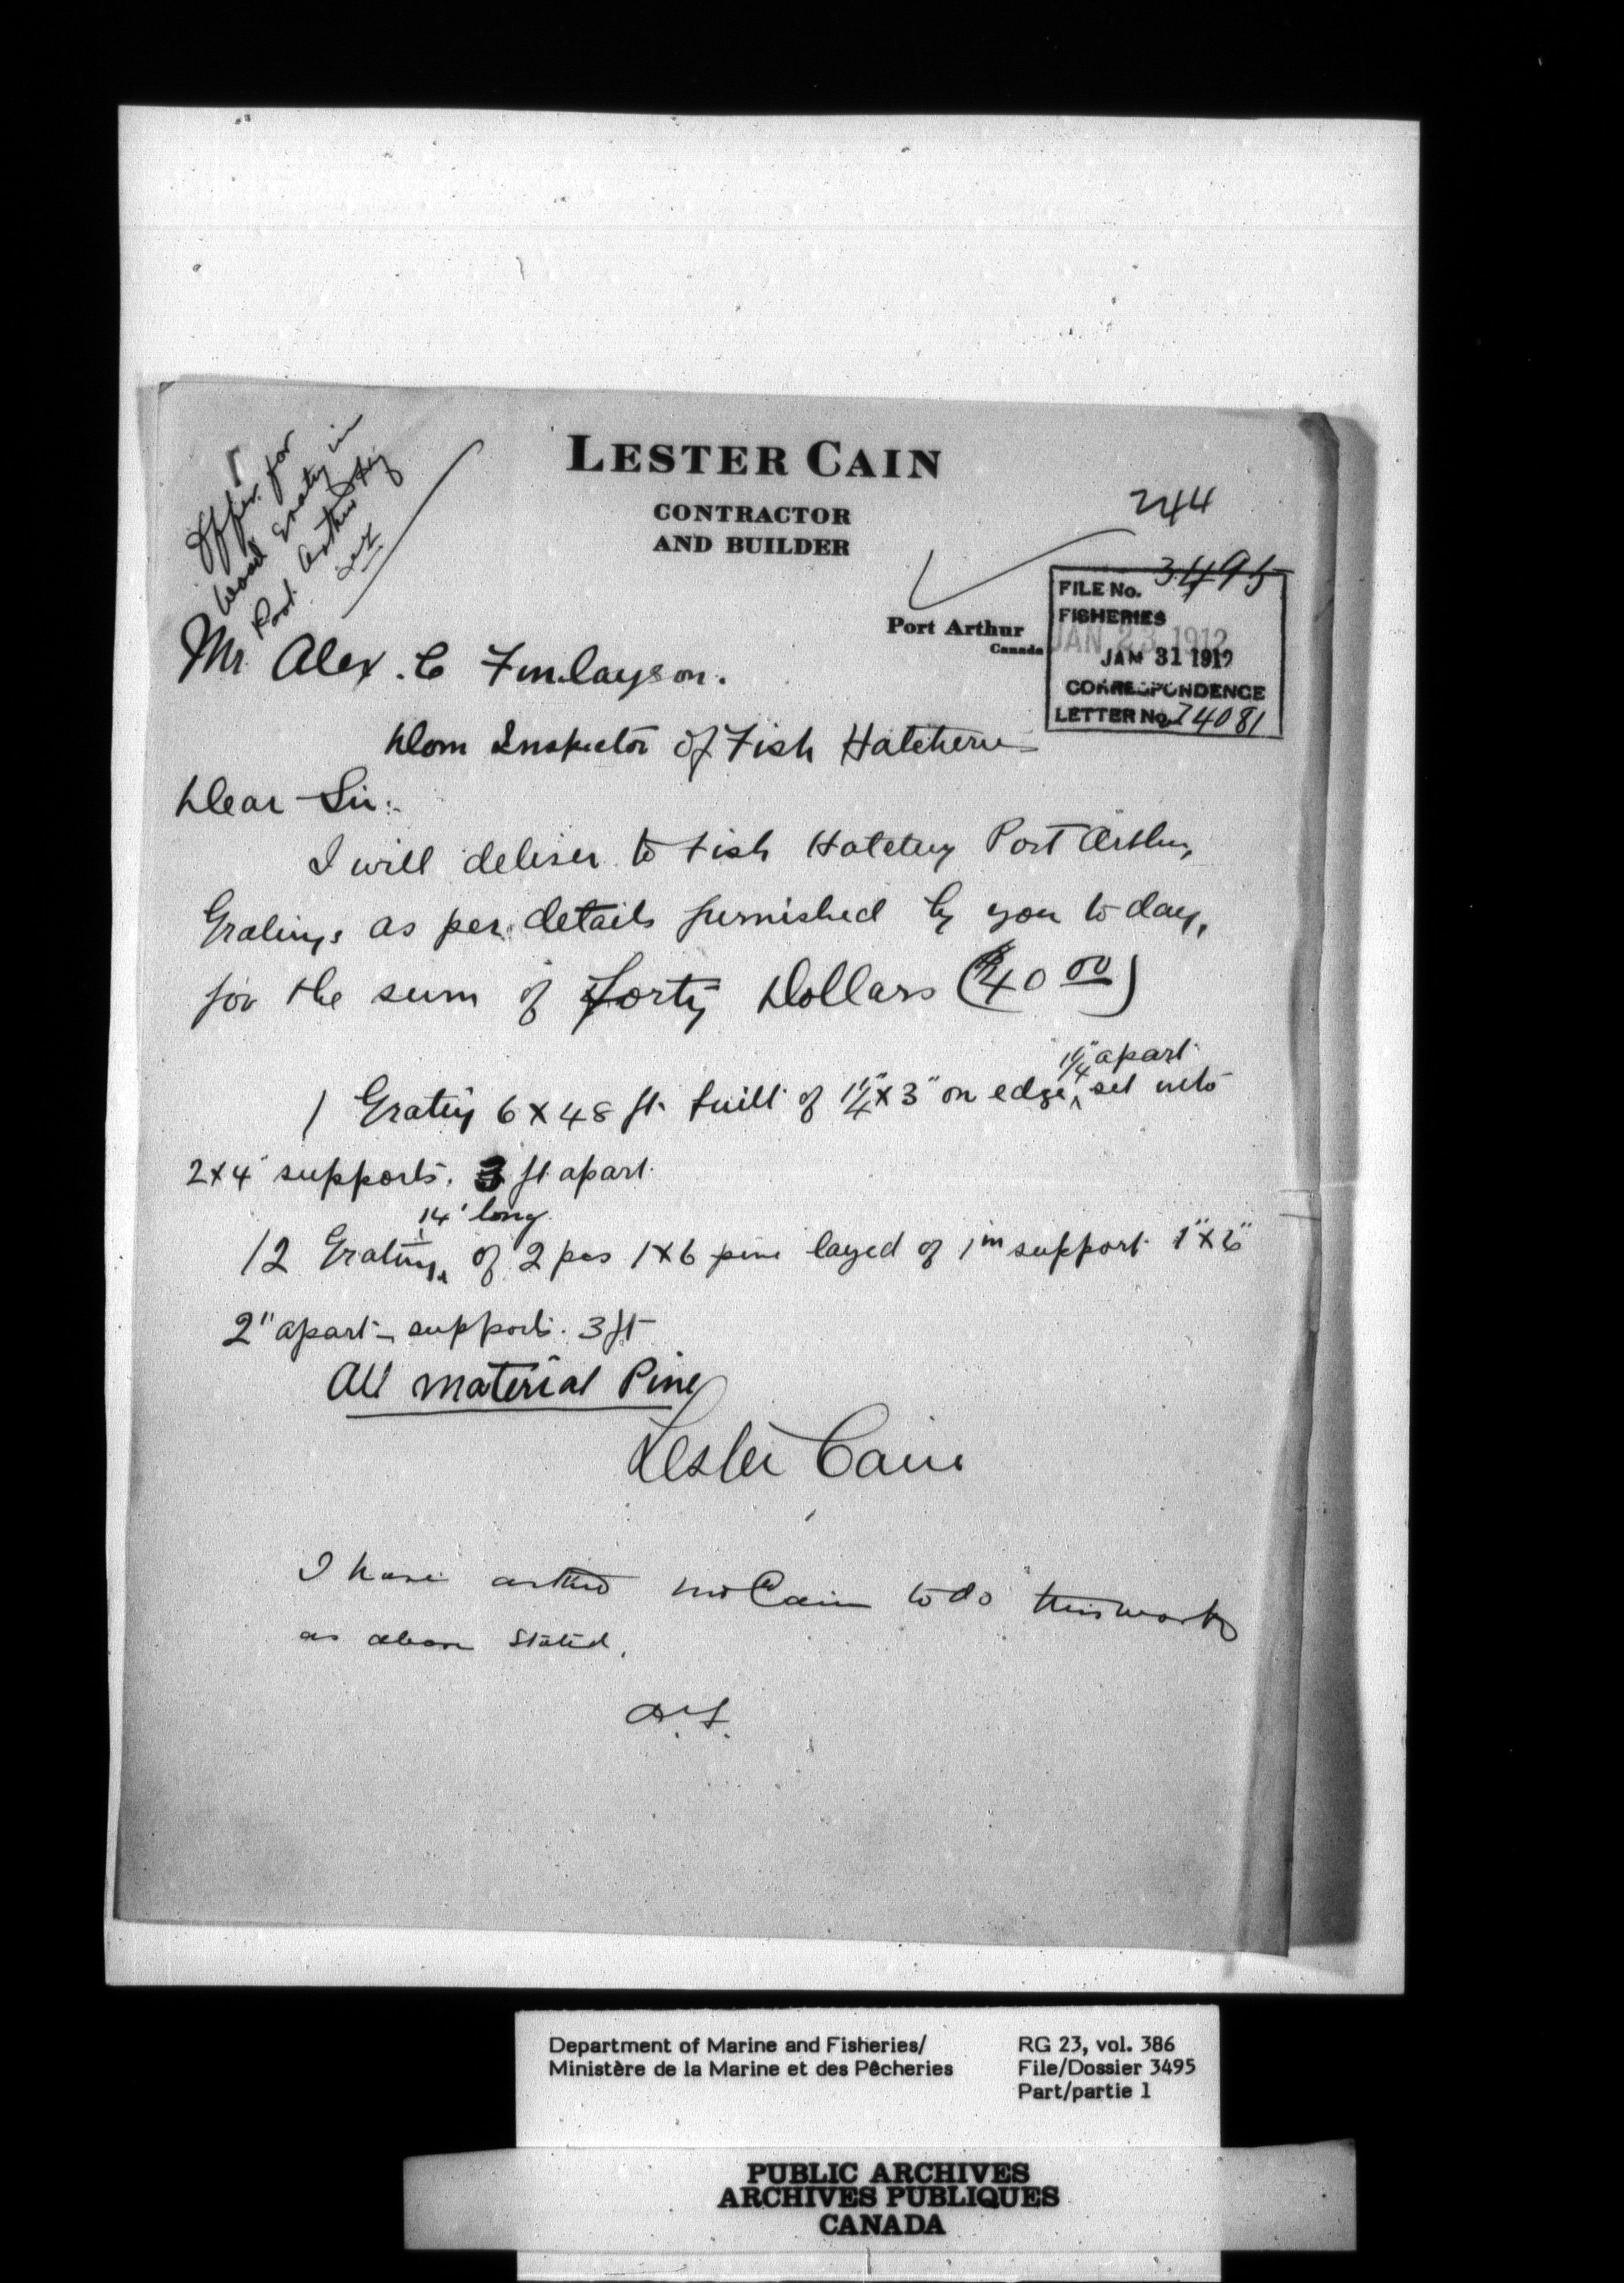 Offer for
Wood Grating in
Port Arthur Hty
LESTER CAIN
CONTRACTOR
AND BUILDER
244
Port Arthur
Canada
FILE No. 3495
FISHERIES
JAN 23 1912
JAN 31 1912
CORRESPONDENCE
LETTER No. 74081
Mr Alex. C Finlayson.
Dom Inspector of Fish Hatcheries
Dear Sir:-
I will deliver to Fish Hatchery Port Arthur,
Gratings as per details furnished by you to day,
for the sum of Forty Dollars ($40 00)
1¼" apart
1 Grating 6 x 48 ft built of 1¼" x 3" on edge, set into
2x4" supports. 3 ft apart.
14' long
12 Gratings of 2 pcs 1x6 pine layed of 1 in support 1" x 6"
2" apart - supports. 3 ft
All material Pine
Lester Cain
I have asked Mr Cain to do this work
as above stated.
A.F.
Department of Marine and Fisheries/
Ministère de la Marine et des Pêcheries
RG 23, vol. 386
File/Dossier 3495
Part/partie 1
PUBLIC ARCHIVES
ARCHIVES PUBLIQUES
CANADA